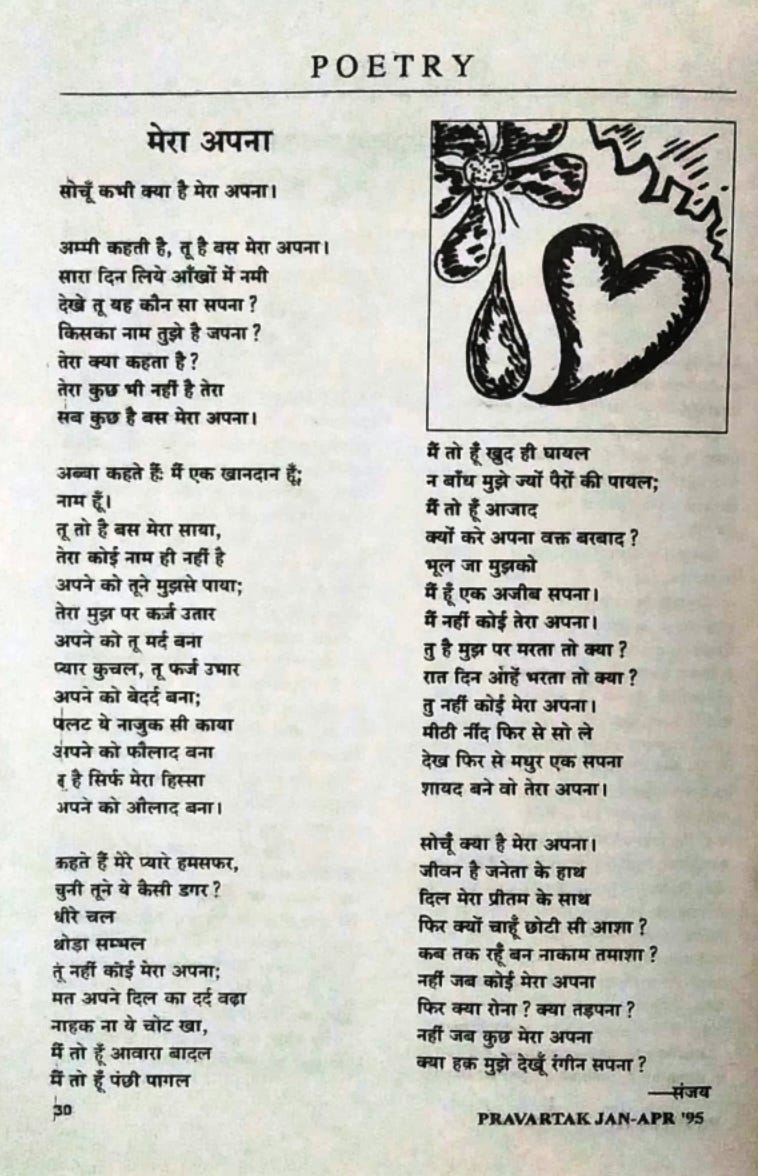 POETRY
मेरा अपना
सोचूँ कभी क्या है मेरा अपना।
अम्मी कहती है, तू है बस मेरा अपना।
सारा दिन लिये आँखों में नमी
देखे तू यह कौन सा सपना?
किसका नाम तुझे है जपना?
तेरा क्या कहता है?
तेरा कुछ भी नहीं है तेरा
सब कुछ है बस मेरा अपना।
अब्बा कहते हैं: मैं एक खानदान हूँ;
नाम हूँ।
तू तो है बस मेरा साया,
तेरा कोई नाम ही नहीं है
अपने को तूने मुझसे पाया;
तेरा मुझ पर कर्ज़ उतार
अपने को तू मर्द बना
प्यार कुचल, तू फर्ज उभार
अपने को बेदर्द बना;
पलट ये नाजुक सी काया
अपने को फौलाद बना
तू है सिर्फ मेरा हिस्सा
अपने को औलाद बना।
कहते हैं मेरे प्यारे हमसफर,
चुनी तूने ये कैसी डगर?
धीरे चल
थोड़ा सम्भल
तू नहीं कोई मेरा अपना;
मत अपने दिल का दर्द बढ़ा
नाहक ना ये चोट खा,
मैं तो हूँ आवारा बादल
मैं तो हूँ पंछी पागल
मैं तो हूँ खुद ही घायल
न बाँध मुझे ज्यों पैरों की पायल;
मैं तो हूँ आजाद
क्यों करे अपना वक्त बरबाद?
भूल जा मुझको
मैं हूँ एक अजीब सपना।
मैं नहीं कोई तेरा अपना।
तु है मुझ पर मरता तो क्या?
रात दिन आहें भरता तो क्या?
तु नहीं कोई मेरा अपना।
मीठी नींद फिर से सो ले
देख फिर से मधुर एक सपना
शायद बने वो तेरा अपना।
सोचूँ क्या है मेरा अपना।
जीवन है जनेता के हाथ
दिल मेरा प्रीतम के साथ
फिर क्यों चाहूँ छोटी सी आशा?
कब तक रहूँ बन नाकाम तमाशा?
नहीं जब कोई मेरा अपना
फिर क्या रोना? क्या तड़पना?
नहीं जब कुछ मेरा अपना
क्या हक़ मुझे देखूँ रंगीन सपना?
—संजय
30
PRAVARTAK JAN-APR '95